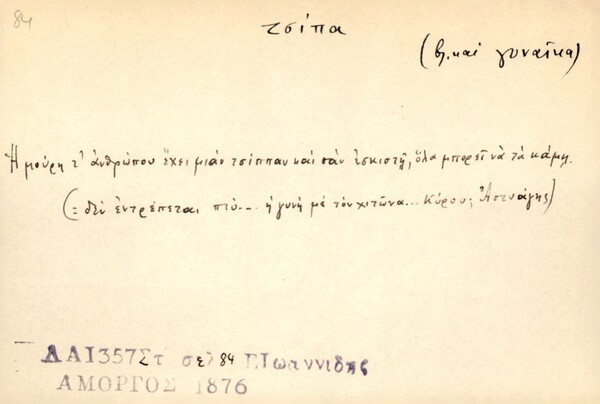 84
τσίπα
(βλ. καὶ γυναῖκα)
Ἡ μούρη τ' ἀνθρώπου ἔχει μιὰν τσίππαν καὶ σὰν ἐσκιστῇ, ὅλα μπορεῖ νὰ τὰ κάμῃ.
(= δὲν ἐντρέπεται πιὸ... ἡ γυνὴ μὲ τὸν χιτῶνα... Κύρου; Ἀστυάγης)
ΛΑΙ357Στ σελ 84 Ε Ιωαννιδης
ΑΜΟΡΓΟΣ 1876